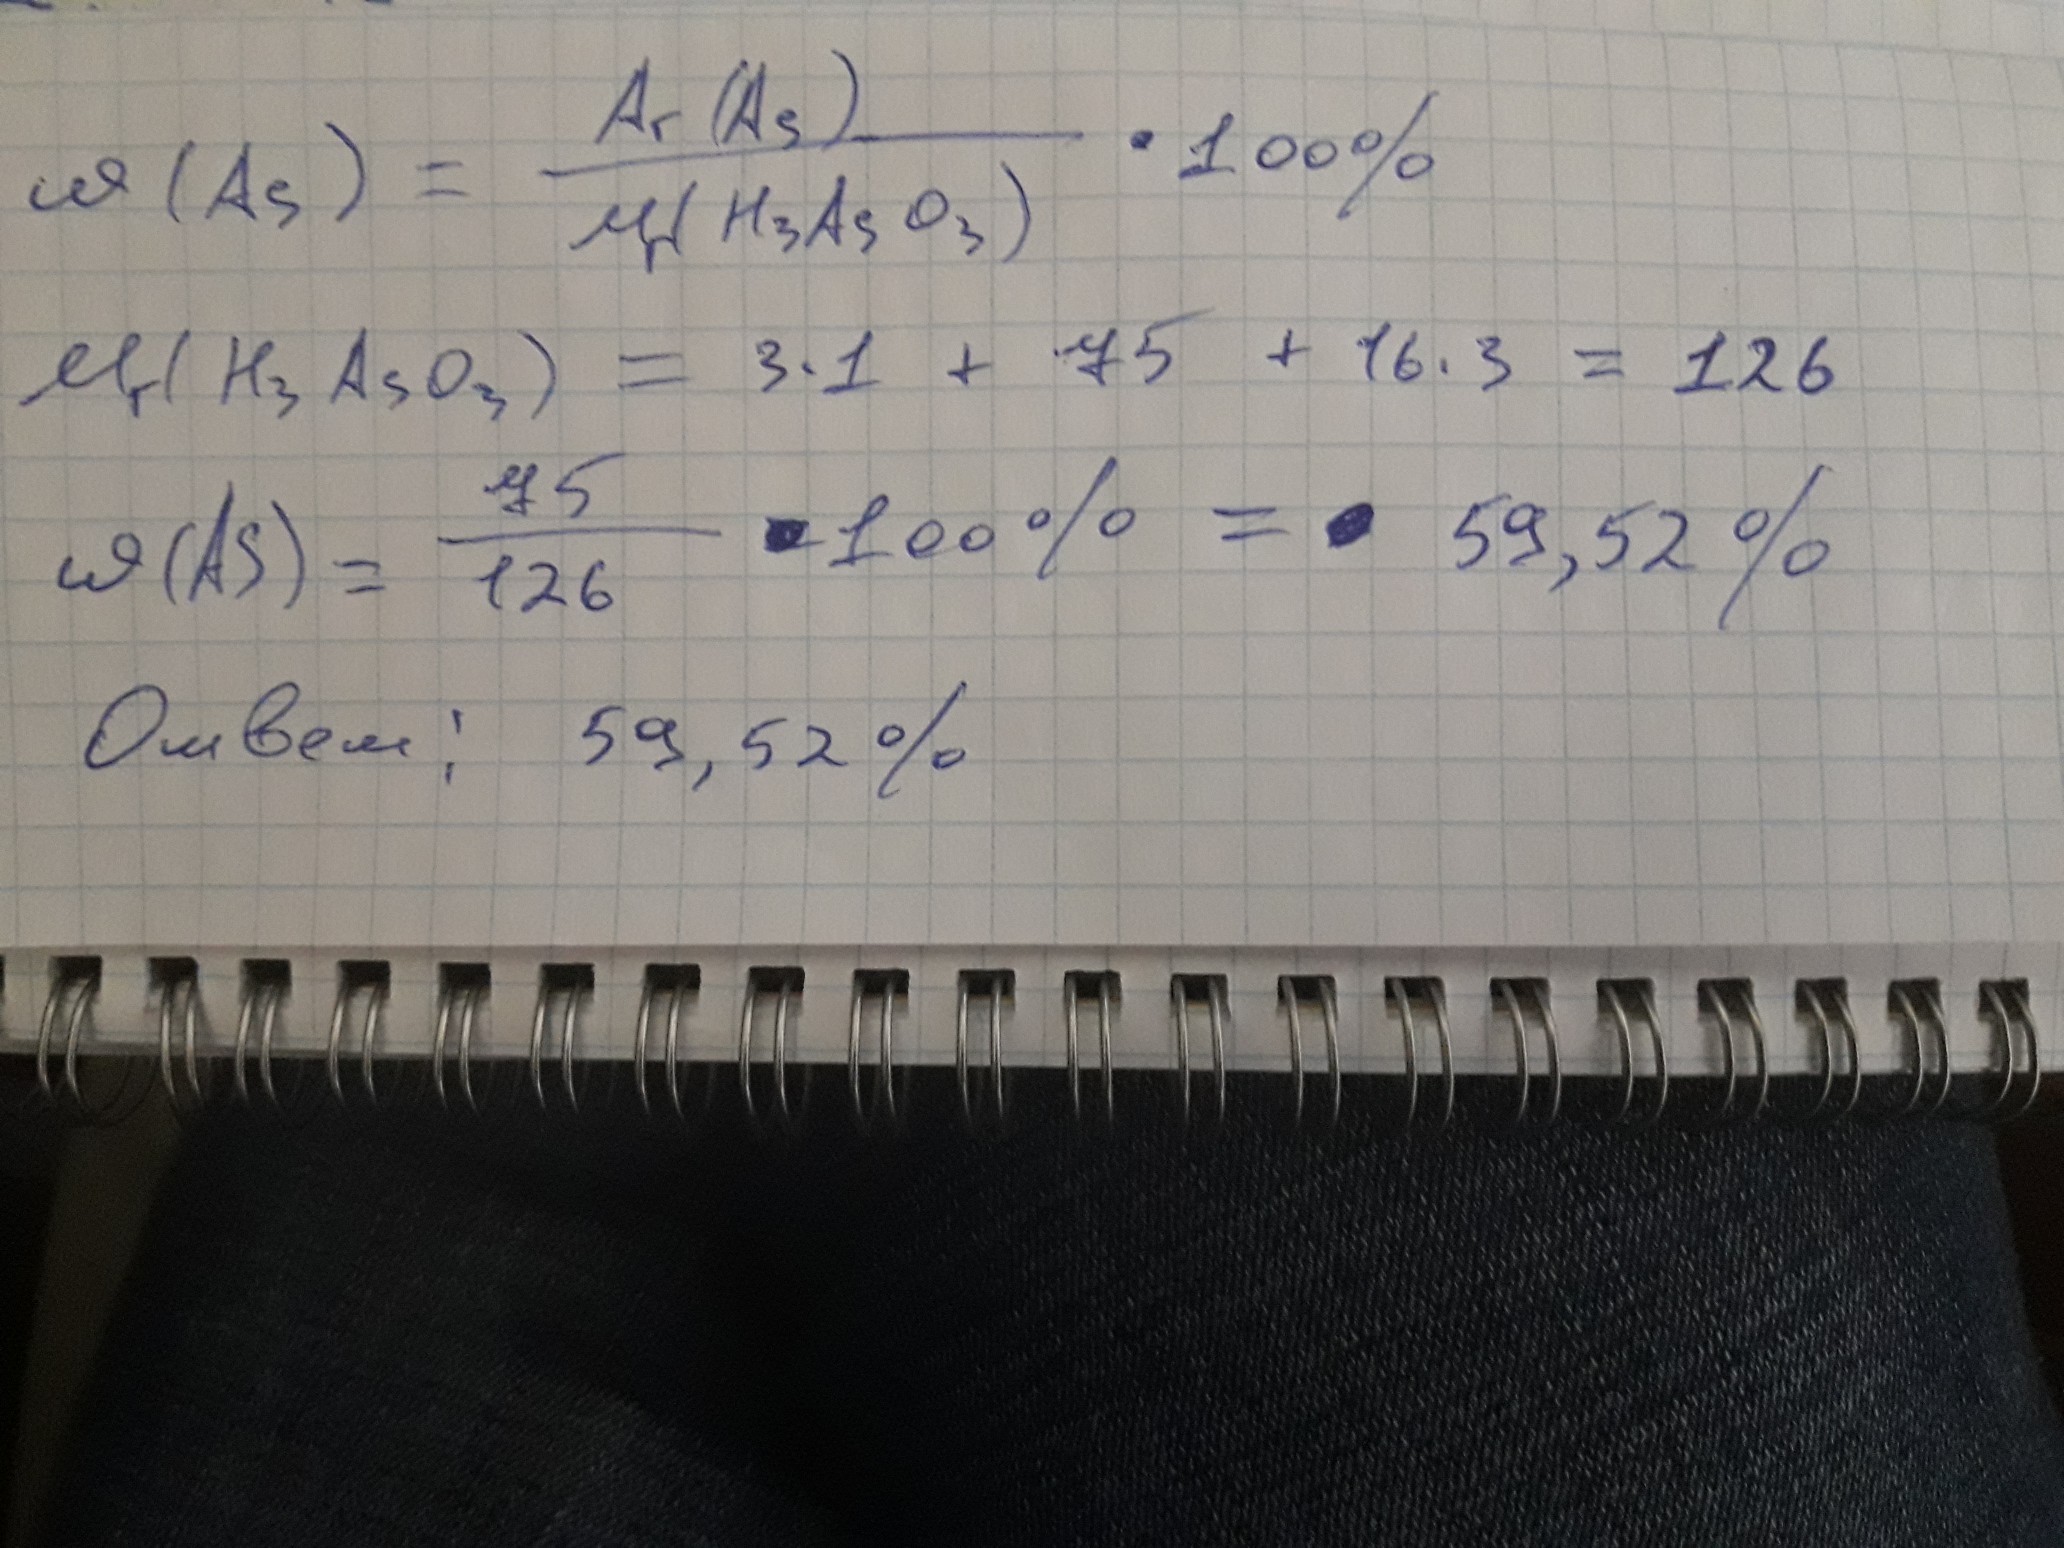 ω(As) = Ar(As) / Mr(H₃AsO₃) · 100%
Mr(H₃AsO₃) = 3·1 + 75 + 16·3 = 126
ω(As) = 75 / 126 · 100% = 59,52%
Ответ: 59,52%